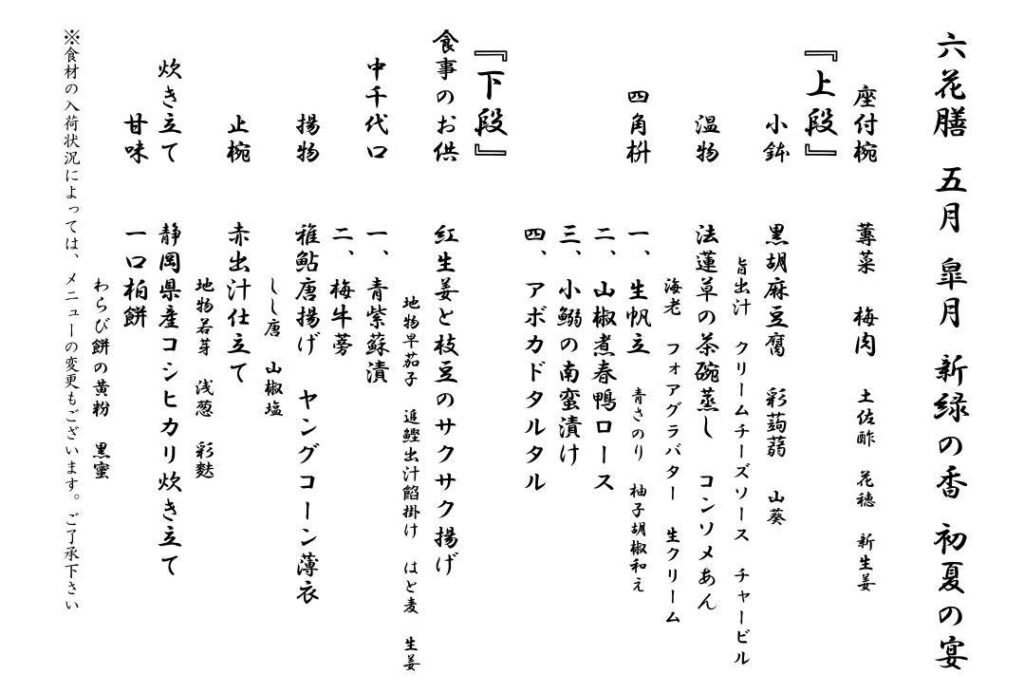 六花膳 五月 皐月 新緑の香 初夏の宴
座付椀 蓴菜 梅肉 土佐酢 花穂 新生姜
『上段』
小鉢 黒胡麻豆腐 彩蒟蒻 山葵
旨出汁 クリームチーズソース チャービル
温物 法蓮草の茶碗蒸し コンソメあん
海老 フォアグラバター 生クリーム
四角枡 一、生帆立 青さのり 柚子胡椒和え
二、山椒煮春鴨ロース
三、小鰯の南蛮漬け
四、アボカドタルタル
『下段』
食事のお供 紅生姜と枝豆のサクサク揚げ
地物早茄子 追鰹出汁餡掛け はと麦 生姜
中千代口 一、青紫蘇漬
二、梅牛蒡
揚物 稚鮎唐揚げ ヤングコーン薄衣
しし唐 山椒塩
止椀 赤出汁仕立て
地物若芽 浅葱 彩麩
炊き立て 静岡県産コシヒカリ炊き立て
甘味 一口柏餅
わらび餅の黄粉 黒蜜
※食材の入荷状況によっては、メニューの変更もございます。ご了承下さい